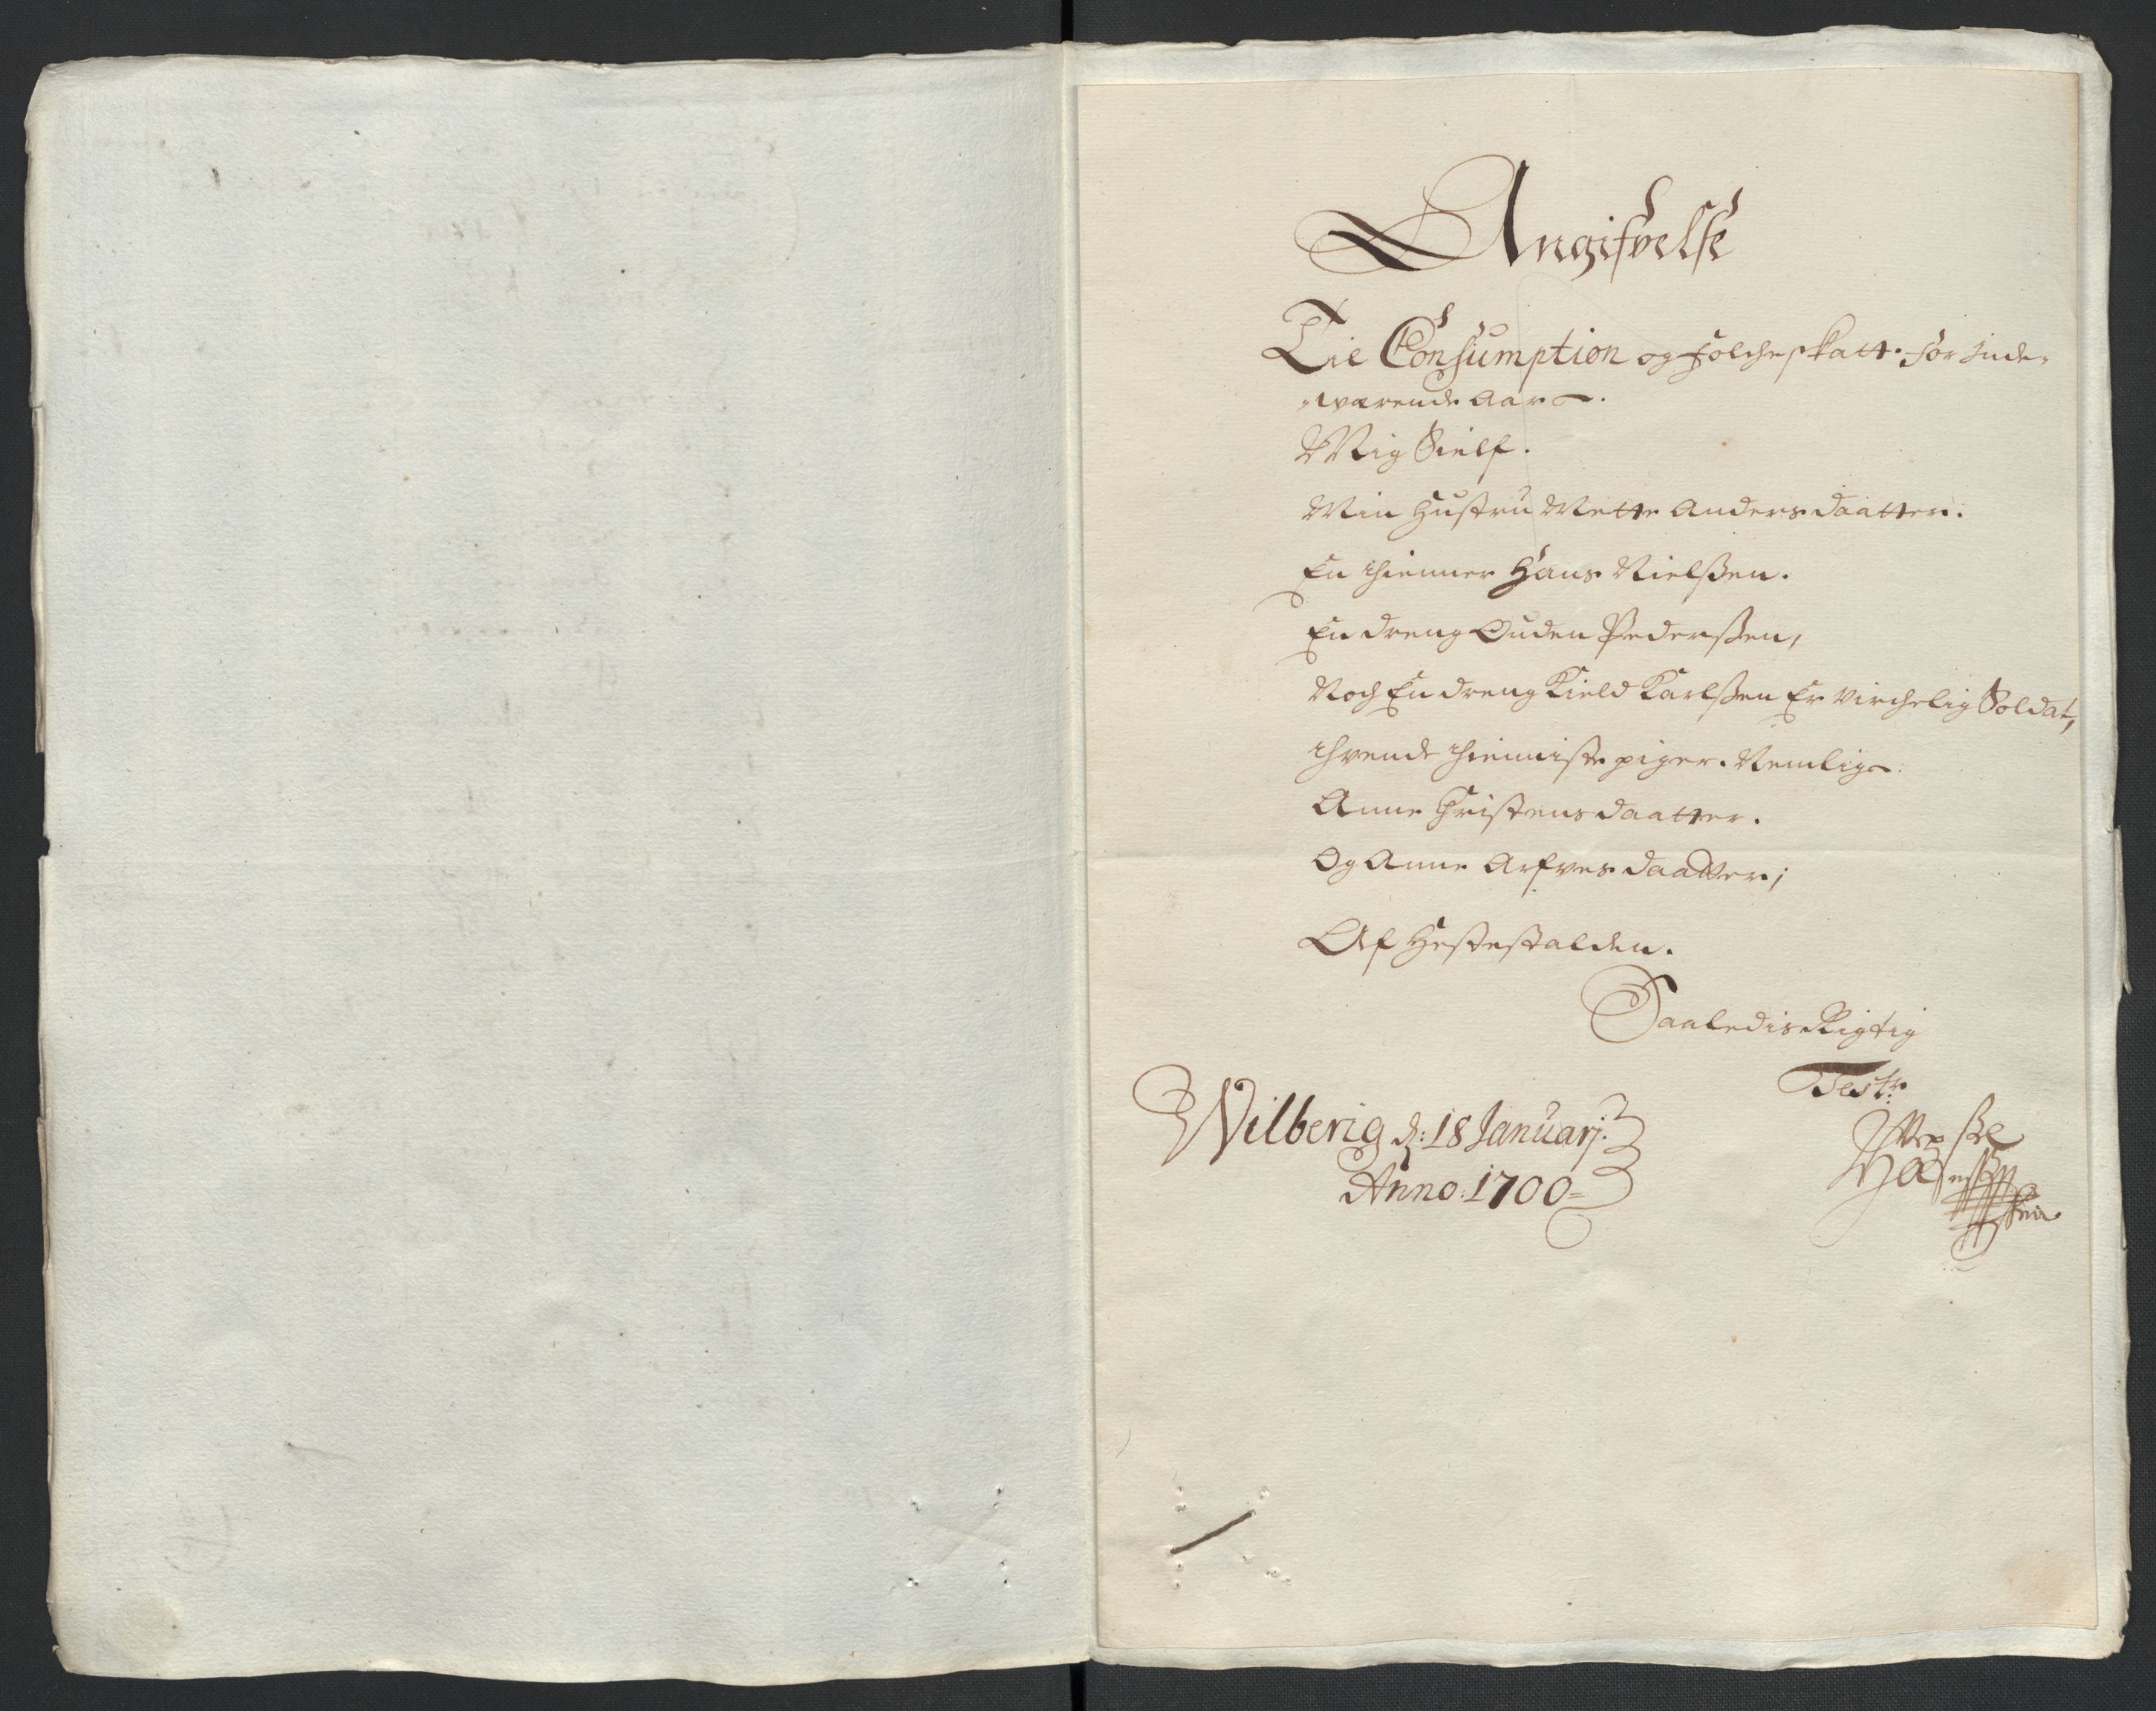 Angifvelse
Til Consumption og folcheskatt for inde-
-werende Aar.
Mig Sielf.
Min Hustru Mette Andersdaatter.
En thienner Hans Nielßen.
En dreng Ouden Pederßen,
Noch En dreng Kield Karlßen Er Virchelig Soldat,
thvende thienniste piger. Nemlig.
Anne Christensdaatter.
Og Anne Arfvesdaatter;
Af Hestestalden.
Saaledis Rigtig
Test:
Wilberig d: 18 Januarj.
Anno: 1700=